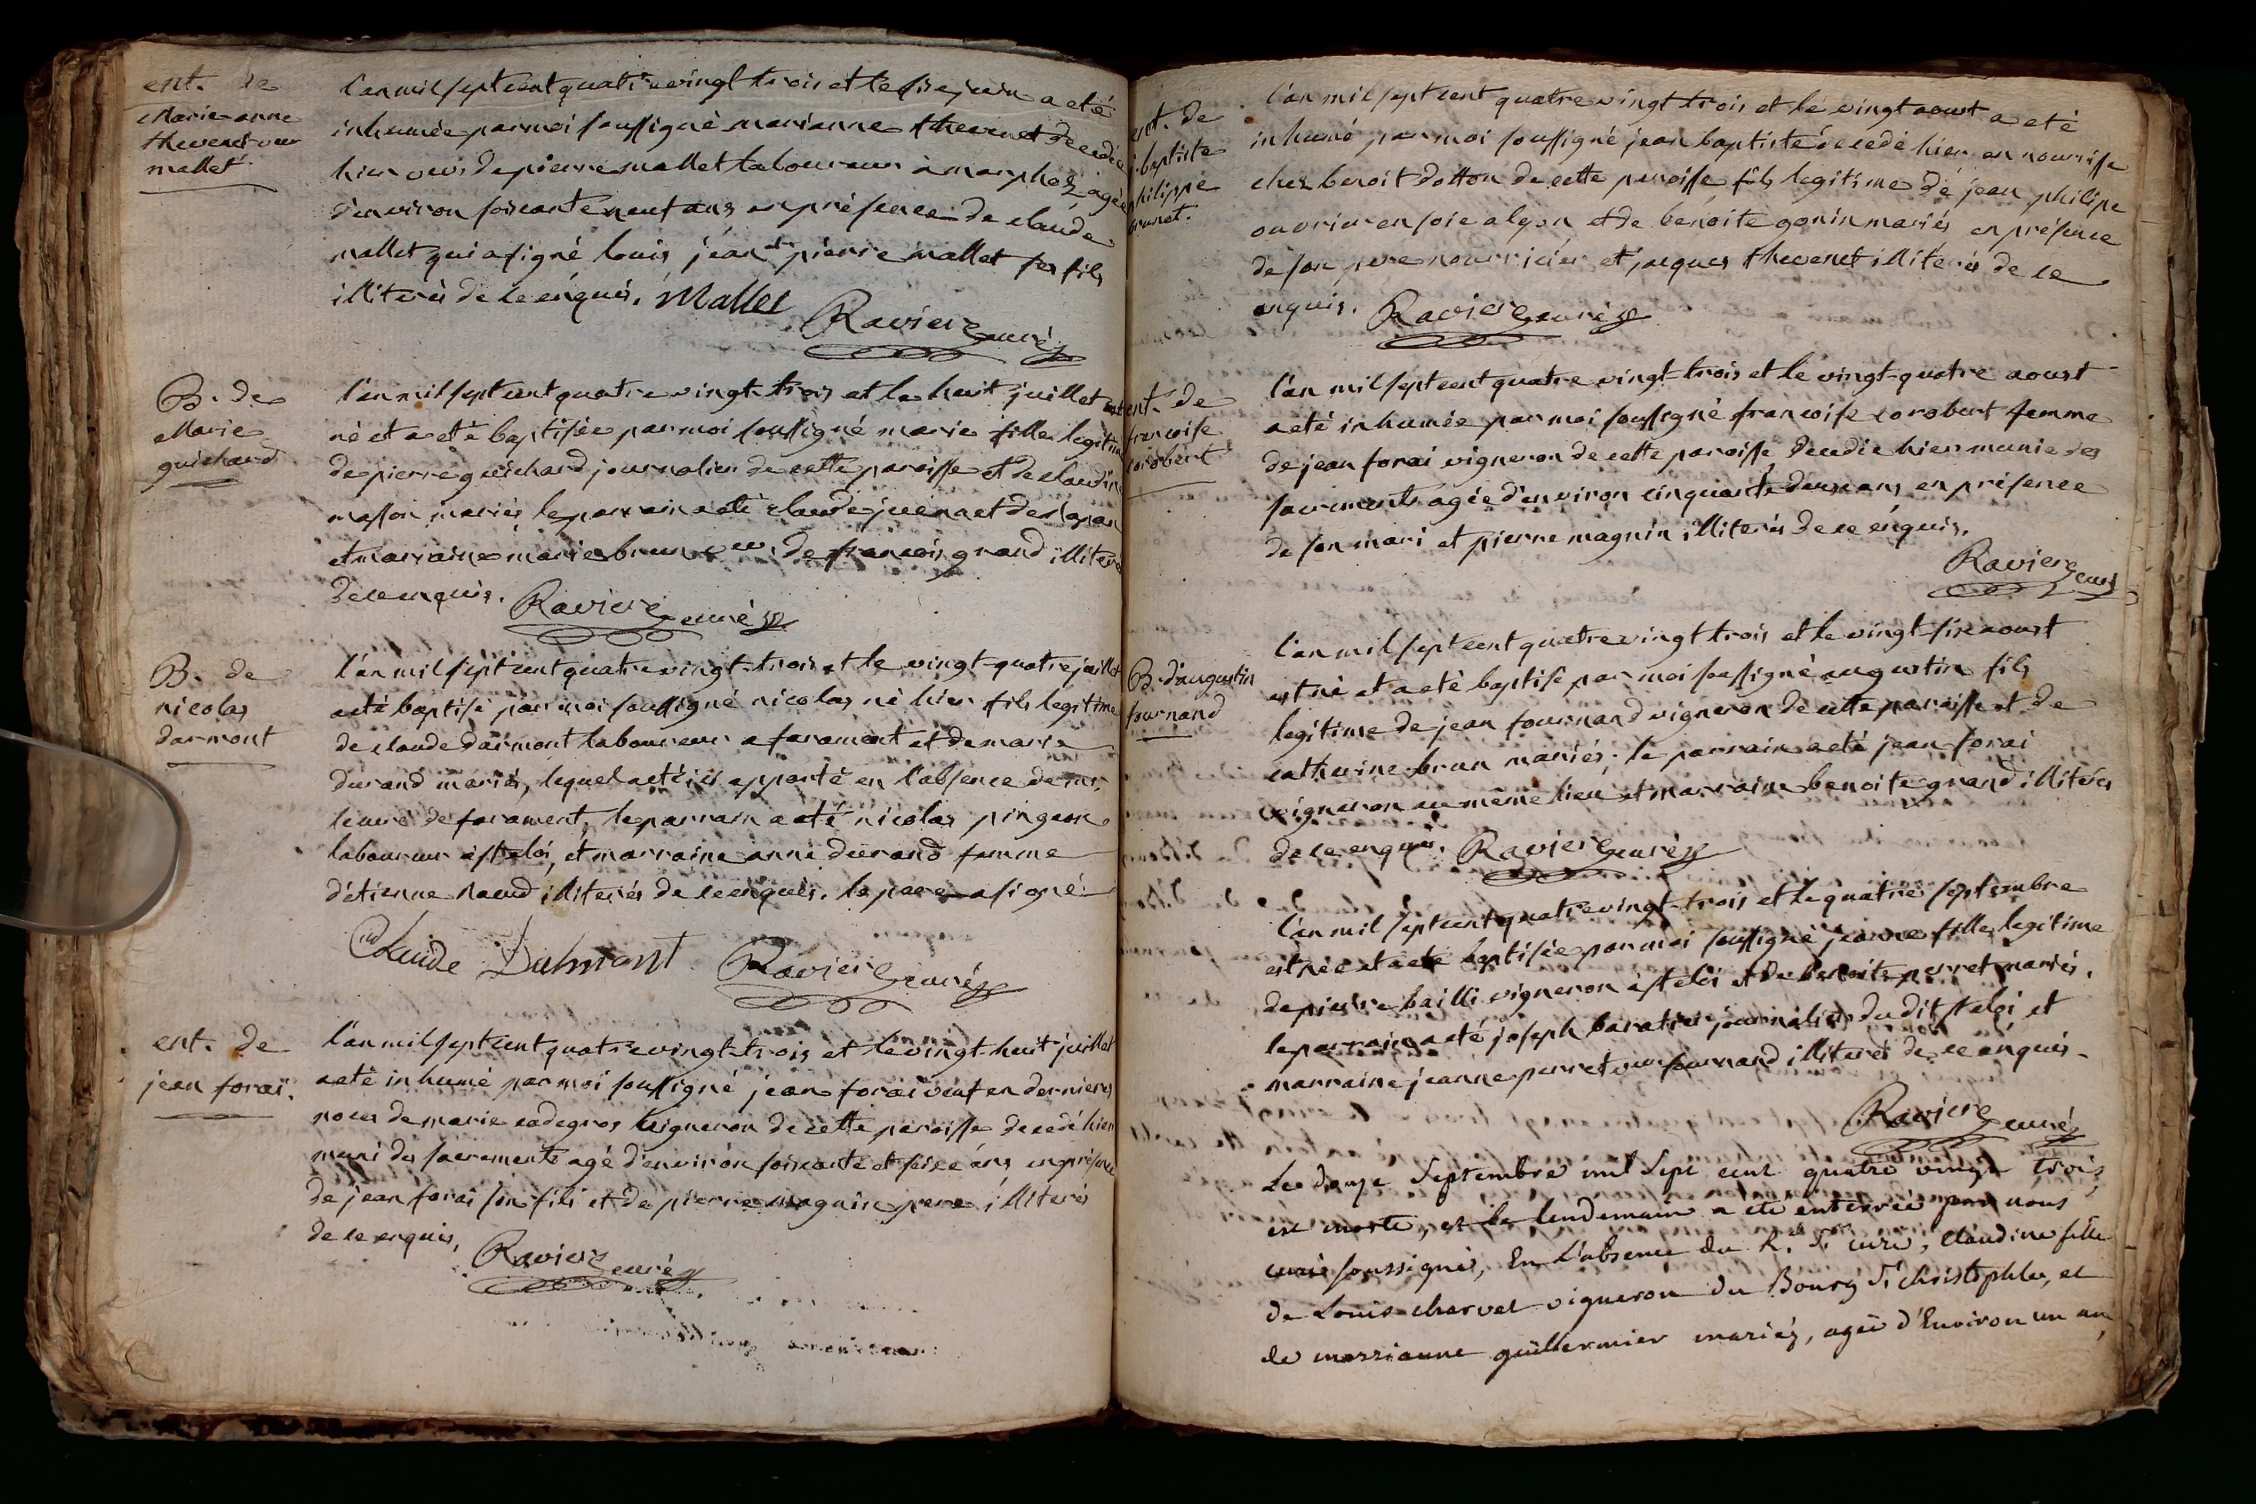 ent. de
Marie anne
thevenet veuve
mallet
l'an mil sept cent quatre vingt trois et le six juin a eté
inhumée par moi soussigné marianne thevenet decedée
hier veuve de pierre mallet laboureur a marphoz agée
d'environ soixante neuf ans en présence de claude
mallet qui a signé louis jean et pierre mallet ses fils
illiterés de ce enquis. Mallet
Raviere curé
B. de
Marie
guichard
l'an mil sept cent quatre vingt trois et le huit juillet est
né et a eté baptisée par moi soussigné marie fille legitime
de pierre guichard journalier de cette paroisse et de claudine
masson mariés, le parrain a eté claude
et marraine marie brun veuve de francois grand illiterés
de ce enquis. Raviere curé
B. de
nicolas
darmont
l'an mil sept cent quatre vingt-trois et le vingt-quatre juillet
a eté baptisé par moi soussigné nicolas né hier fils legitime
de claude darmont laboureur a farament et de marie
durand mariés, lequel a eté ici apporté en l'absence de mr.
le curé de farament, le parrain a eté nicolas pingeon
laboureur a st eloi, et marraine anne durand femme
d'étienne naud illiterés de ce enquis. le pere a signé
Claude Dalmont Raviere curé
ent. de
jean forai.
l'an mil sept cent quatre vingt-trois et le vingt-huit juillet
a eté inhumé par moi soussigné jean forai veuf en dernieres
noces de marie cadegros vigneron de cette paroisse decedé hier
muni des sacrements agé d'environ soixante et seize ans en présence
de jean forai son fils et de pierre magnin pere illiterés
de ce enquis, Raviere curé
ent. de
j. baptiste
philippe
brunet.
l'an mil sept cent quatre vingt trois et le vingt aoust a eté
inhumé par moi soussigné jean baptiste décedé hier en nourrisse
chez benoit dotton de cette paroisse fils legitime de jean philipe
ouvrier en soie a lyon et de benoite gonin mariés en présence
de son pere nourricier et jacques thevenet illiterés de ce
enquis. Raviere curé
ent. de
francoise
corobert
l'an mil sept cent quatre vingt-trois et le vingt-quatre aoust
a eté inhumée par moi soussigné francoise corobert femme
de jean forai vigneron de cette paroisse decedée hier munie des
sacrements agée d'environ cinquante deux ans en présence
de son mari et pierre magnin illiterés de ce enquis.
Raviere curé
B. d'augustin
fournand
l'an mil sept cent quatre vingt trois et le vingt-six aoust
est né et a eté baptisé par moi soussigné augustin fils
legitime de jean fournand vigneron de cette paroisse et de
catherine brun mariés. le parrain a eté jean forai
vigneron au même lieu et marraine benoite grand illiterés
de ce enquis. Raviere curé
l'an mil sept cent quatre vingt-trois et le quatre septembre
est née et a eté baptisée par moi soussigné jeanne fille legitime
de pierre bailli vigneron a st eloi et de benoite perret mariés.
le parrain a eté joseph baratier journalier du dit st eloi et
marraine jeanne perret veuve fournand illiterés de ce enquis.
Raviere curé
Le douze Septembre mil Sept cent quatre vingt trois,
est morte, et le lendemain a eté enterrée par nous
curé soussigné, En L'absence du R. Sr curé, Claudine fille
de Louis chervet vigneron du Bourg St christophle, et
de marrianne guillermier mariés, agée d'Environ un an,